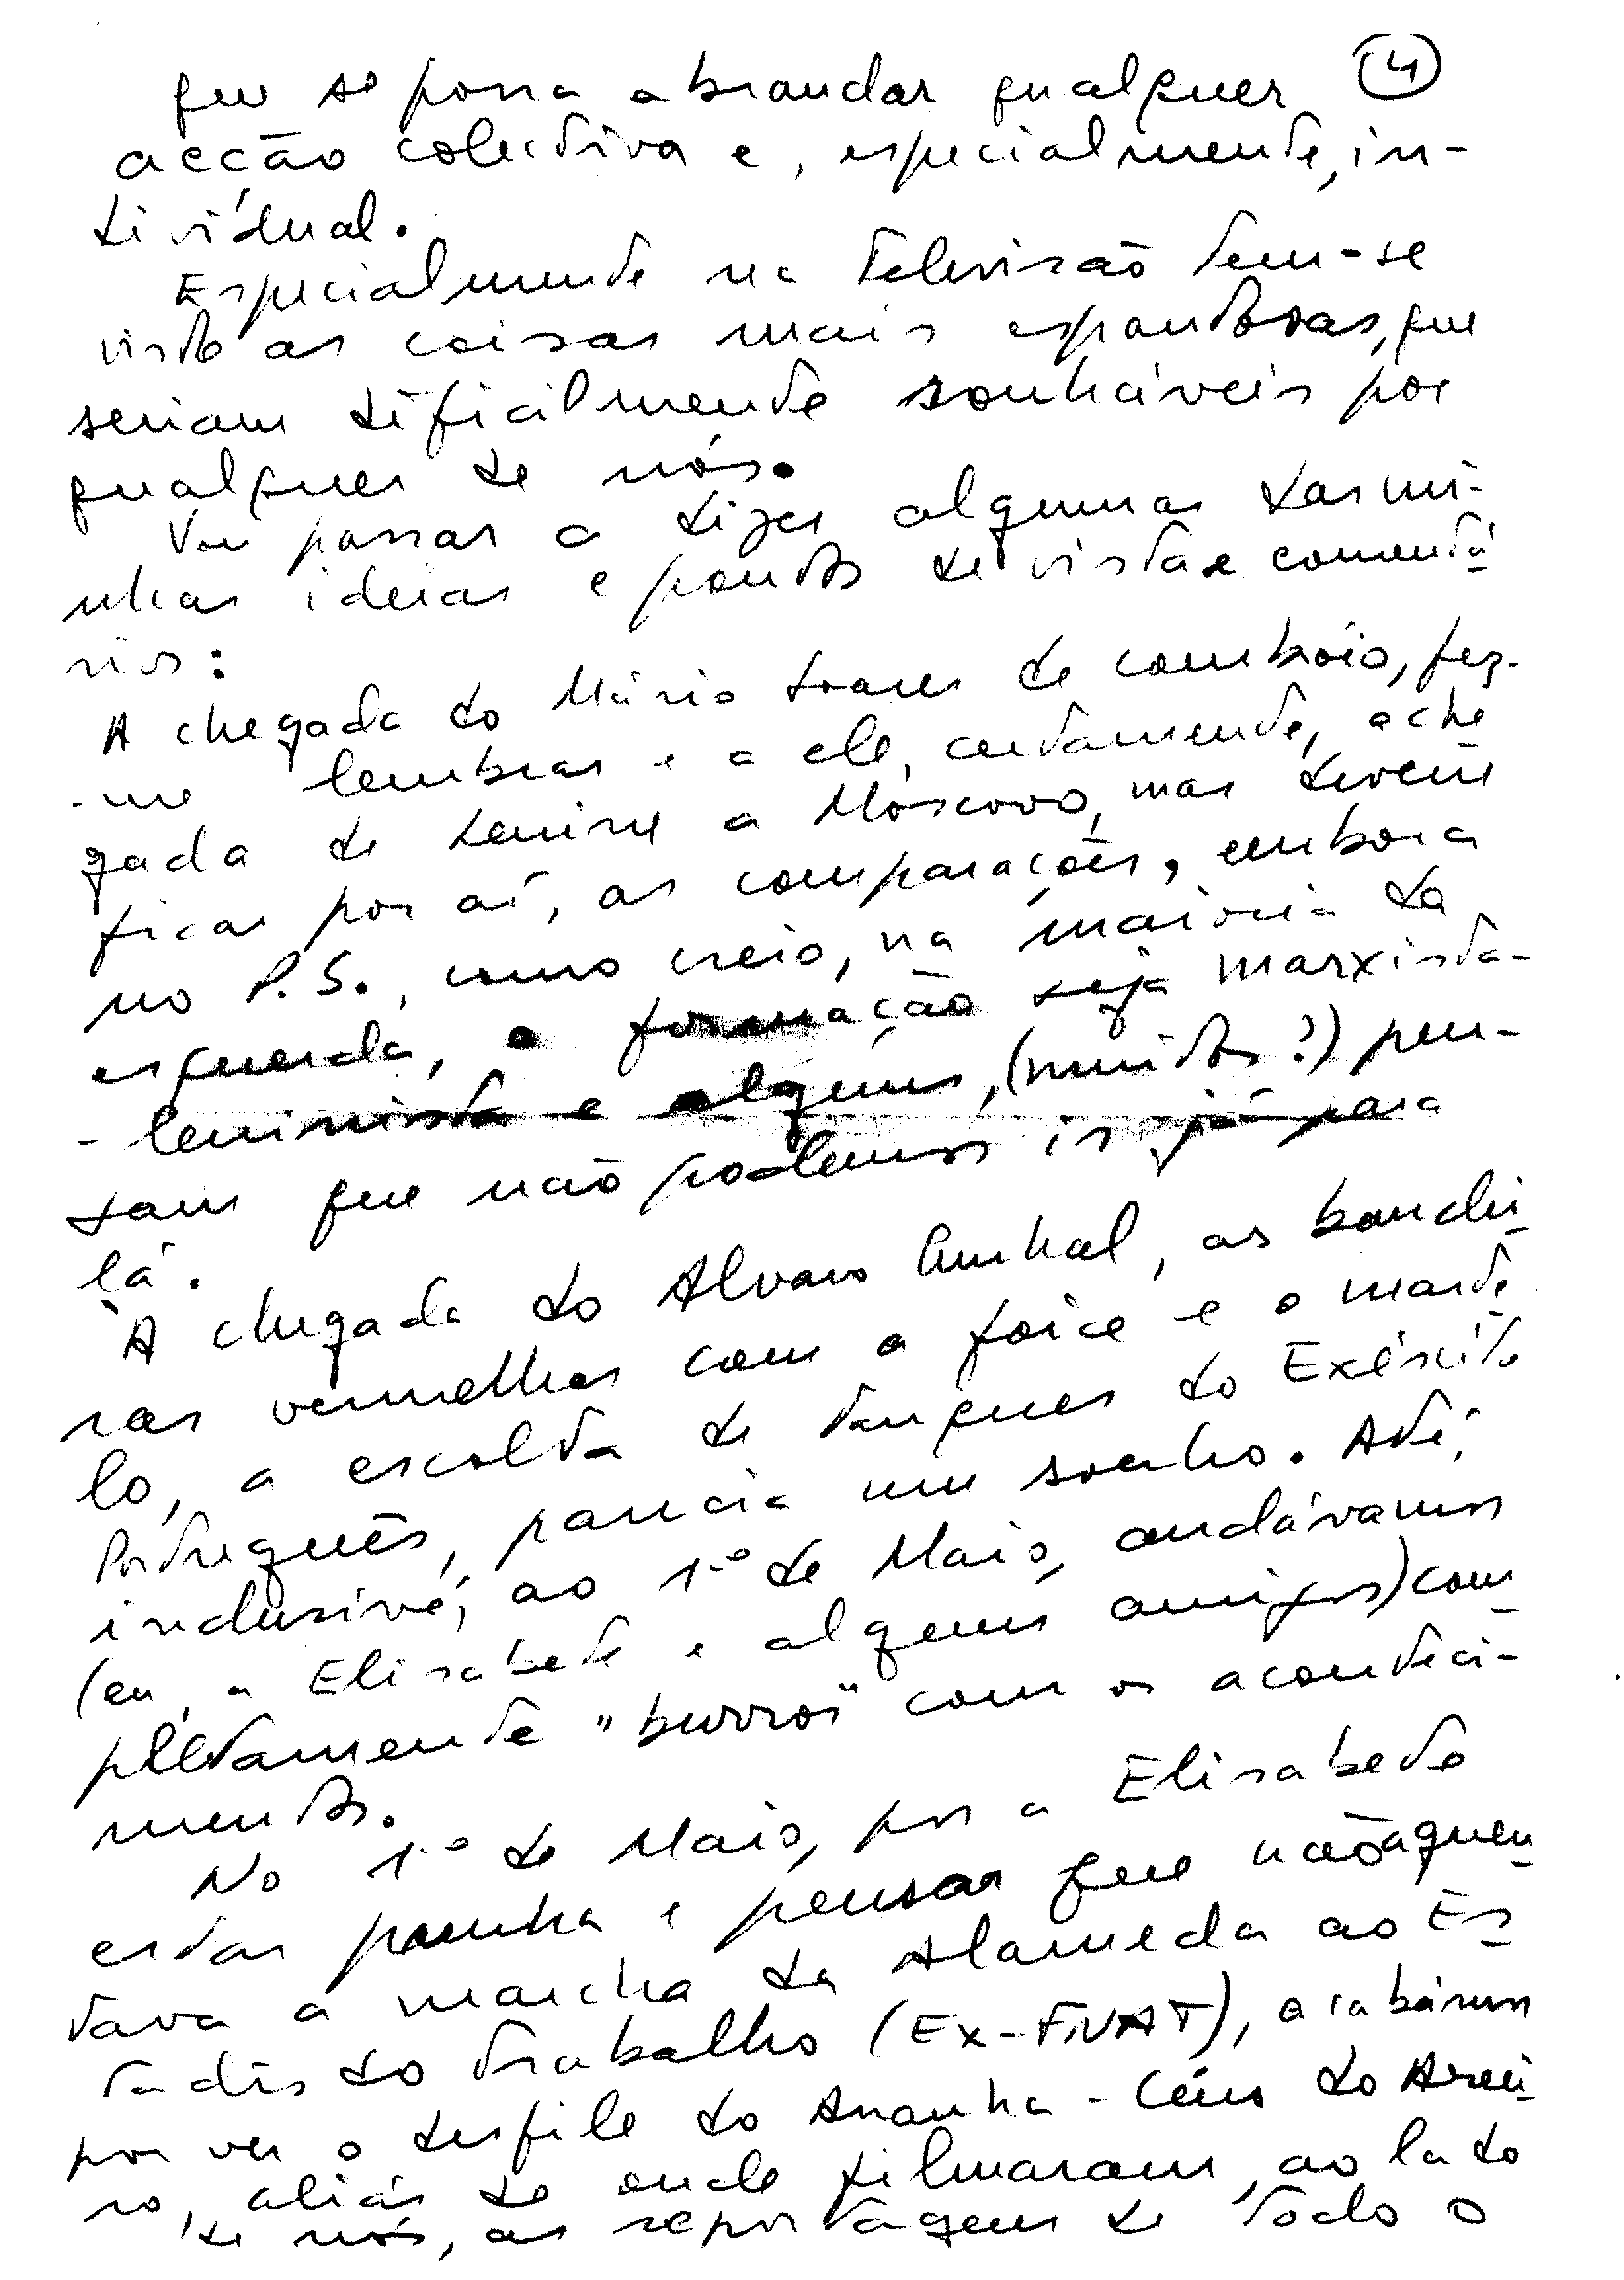 (4)
que se possa abrandar qualquer
acção colectiva e, especialmente, in-
dividual.
Especialmente na televisão tem-se
visto as coisas mais espantosas, que
seriam dificilmente sonháveis por
qualquer de nós.
Vou passar a dizer algumas das mi-
nhas ideias e pontos de vista e comentá-
rios:
A chegada do Mário Soares de comboio, fez-
-me lembrar e a ele, certamente, a che
gada de Lenine a Moscovo, mas devem
ficar por aí, as comparações, embora
no P.S., como creio, na maioria da
esquerda, a formação seja marxista-
-leninista e alguns, (muitos?) pen-
sam que não podemos ir já para
lá.
À chegada do Alvaro Cunhal, as bandei-
ras vermelhas com a foice e o marte-
lo, a escolta de tanques do Exército
Português, parecia um sonho. Até,
inclusivé, ao 1.º de Maio, andávamos
(eu, a Elisabete e alguns amigos) com
pletamente "burros" com os aconteci-
mentos.
No 1.º de Maio, por a Elisabete
estar prenha e pensar que não aguen-
tava a marcha da Alameda ao Es-
tádio do Trabalho (Ex-FNAT), acabámos
por ver o desfile do Aranha-Céus do Areei-
ro, aliás de onde filmaram, ao lado
de nós, as reportagens de todo o